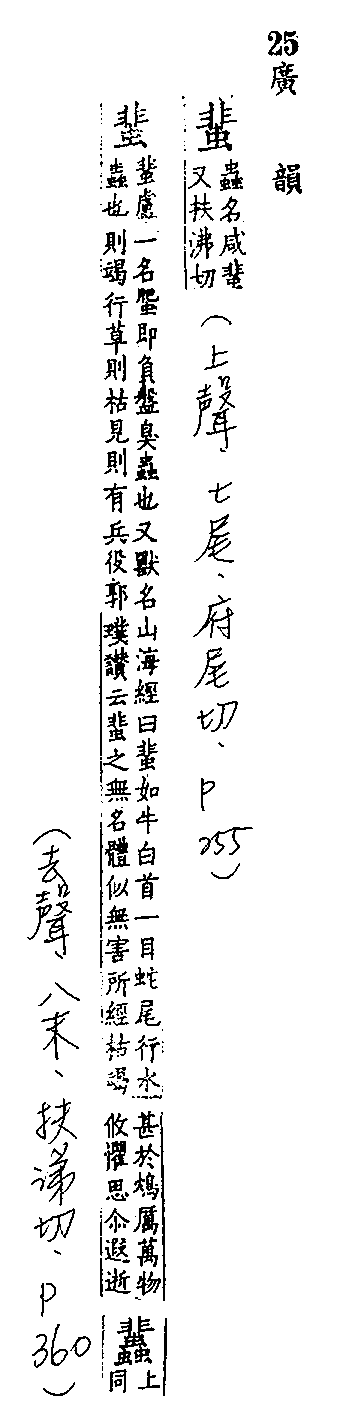 25 廣韻
蜚
蟲名咸蜚
又扶沸切
(上聲、七尾、府尾切、P255)
蜚
蜚慮一名蜰即負盤臭蟲也又獸名山海經曰蜚如牛白首一目蛇尾行水
蟲也則竭行草則枯見則有兵役郭璞讚云蜚之無名體似無害所經枯竭
甚於鴆厲萬物
攸懼思尒遐逝
上
同
(去聲、八未、扶涕切、P360)